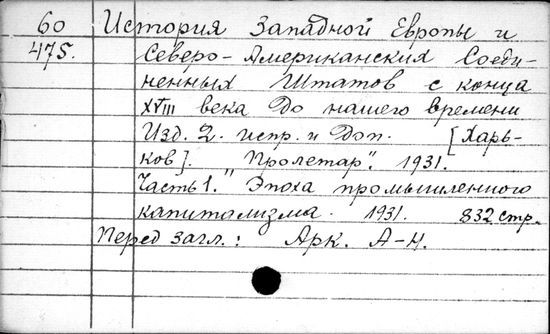 60 История Западной Европы и
475. Северо-Американских Соеди-
ненных Штатов с конца
XVIII века до нашего времени
Изд. 2. испр. и доп. [Харь-
ков]. "Пролетар". 1931.
Часть 1. "Эпоха промышленного
капитализма. 1931. 832 стр.
Перед загл.: Арк. А-Н.